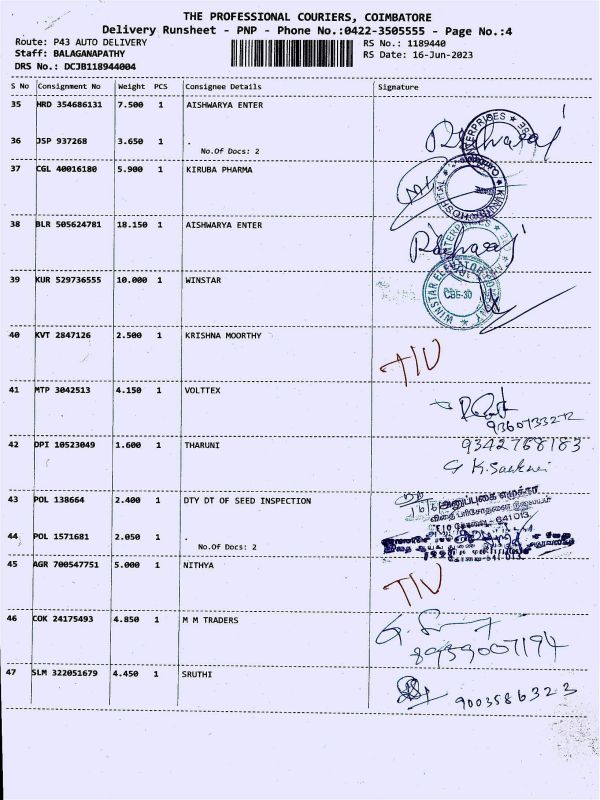 THE PROFESSIONAL COURIERS, COIMBATORE
Delivery Runsheet - PNP - Phone No.:0422-3505555 - Page No.:4
Route: P43 AUTO DELIVERY RS No.: 1189440
Staff: BALAGANAPATHY RS Date: 16-Jun-2023
DRS No.: DCJB118944004
S No Consignment No Weight PCS Consignee Details Signature
35 HRD 354686131 7.500 1 AISHWARYA ENTER
36 JSP 937268 3.650 1 .
No.Of Docs: 2
37 CGL 40016180 5.900 1 KIRUBA PHARMA
38 BLR 505624781 18.150 1 AISHWARYA ENTER
39 KUR 529736555 10.000 1 WINSTAR
WINSTAR ELEVATOR
CBE-30
40 KVT 2847126 2.500 1 KRISHNA MOORTHY
TIV
41 MTP 3042513 4.150 1 VOLTTEX
9360733272
42 DPI 10523049 1.600 1 THARUNI 9342768183
43 POL 138664 2.400 1 DTY DT OF SEED INSPECTION
விதை பரிசோதனை நிலையம்
44 POL 1571681 2.050 1 .
No.Of Docs: 2
45 AGR 700547751 5.000 1 NITHYA
TIV
46 COK 24175493 4.850 1 M M TRADERS
8939007194
47 SLM 322051679 4.450 1 SRUTHI
9003586323